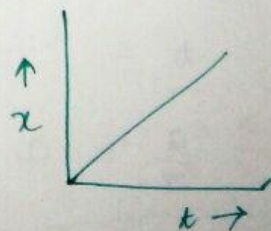 ↑
x
t →